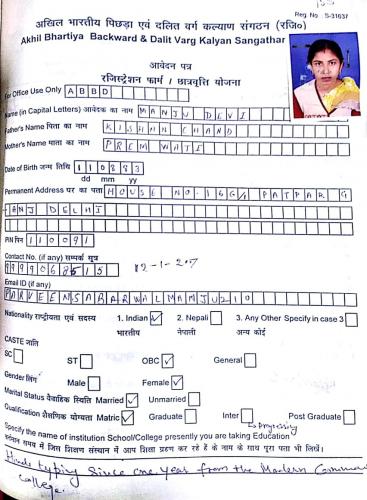 Reg. No : S-31637
अखिल भारतीय पिछड़ा एवं दलित वर्ग कल्याण संगठन (रजि०)
Akhil Bhartiya Backward & Dalit Varg Kalyan Sangathan
आवेदन पत्र
रजिस्ट्रेशन फार्म / छात्रवृत्ति योजना
For Office Use Only A B B D
Name (in Capital Letters) आवेदक का नाम MANJU DEVI
Father's Name पिता का नाम KISHAN CHAND
Mother's Name माता का नाम PREM WATI
Date of Birth जन्म तिथि 110883
dd mm yy
Permanent Address घर का पता HOUSE NO. 16G/1 PATPAR G
ANJ DELHI
PIN पिन 110091
Contact No. (if any) सम्पर्क सूत्र
9999068515
Email ID (if any)
Nationality राष्ट्रीयता एवं सदस्य 1. Indian ✓ 2. Nepali 3. Any Other Specify in case 3
भारतीय नेपाली अन्य कोई
CASTE जाति
SC ST OBC ✓ General
Gender लिंग Male Female ✓
Marital Status वैवाहिक स्थिति Married ✓ Unmarried
Qualification शैक्षणिक योग्यता Matric ✓ Graduate Inter Post Graduate
Progressing
Specify the name of institution School/College presently you are taking Education
वर्तमान समय में जिस शिक्षण संस्थान में आप शिक्षा ग्रहण कर रहे हैं के नाम के साथ पूरा पता भी लिखें।
Hindi typing Since one year from the Modern
College.